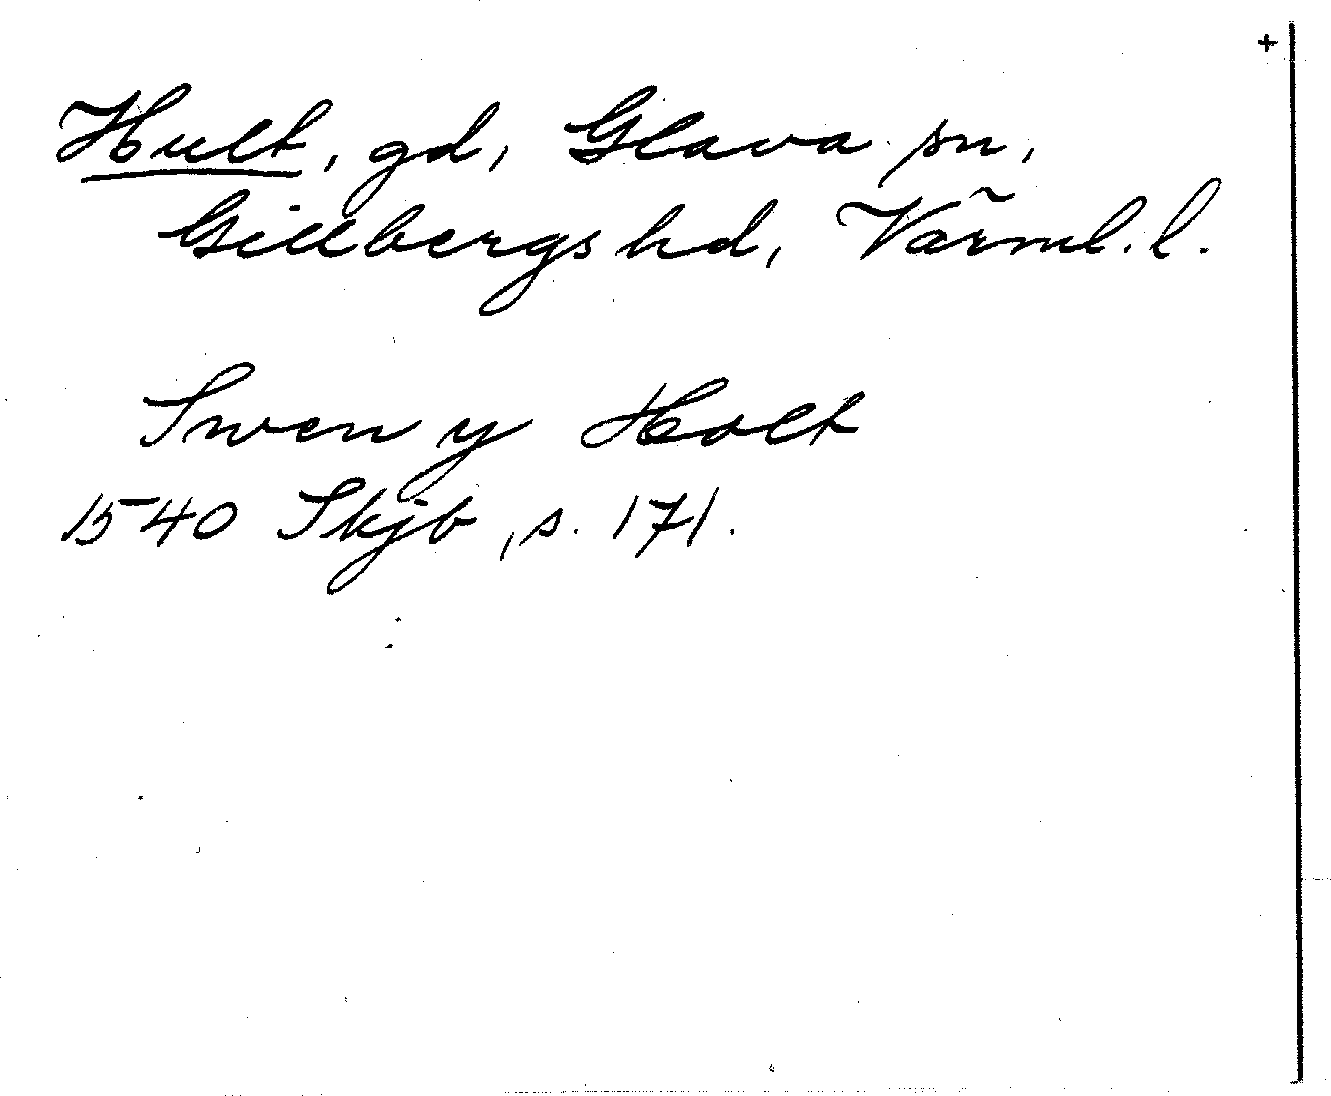 +
Hult, gd, Glava sn,
Gillbergs hd, Värml. l.
Swen y Holt
1540 Skjb, s. 171.